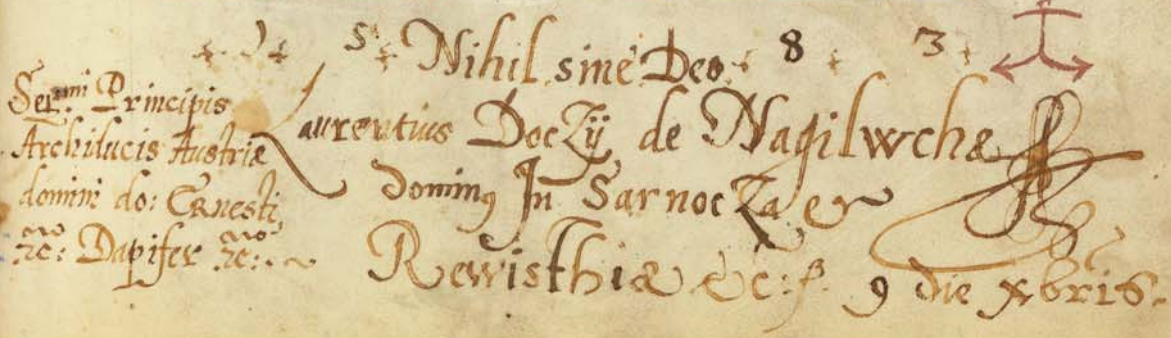 1 5 Nihil sine Deo. 8 3
Ser:mi Principis
Archiducis Austriæ
domini do: Ernesti
etc: Dapifer etc:
Laurentius Doczÿ de Nagilwchæ
dominus In Sarnocza et
Rewisthiæ &c: 9 die xbris.